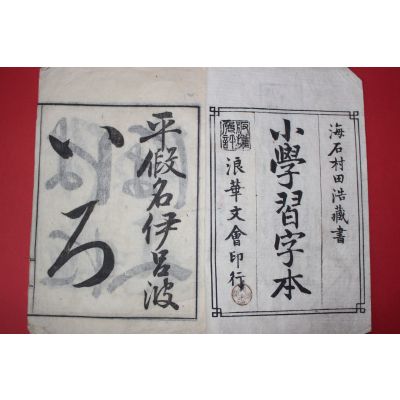 海石村田浩藏書
小學習字本
浪華文會印行
平假名伊呂波
いろ